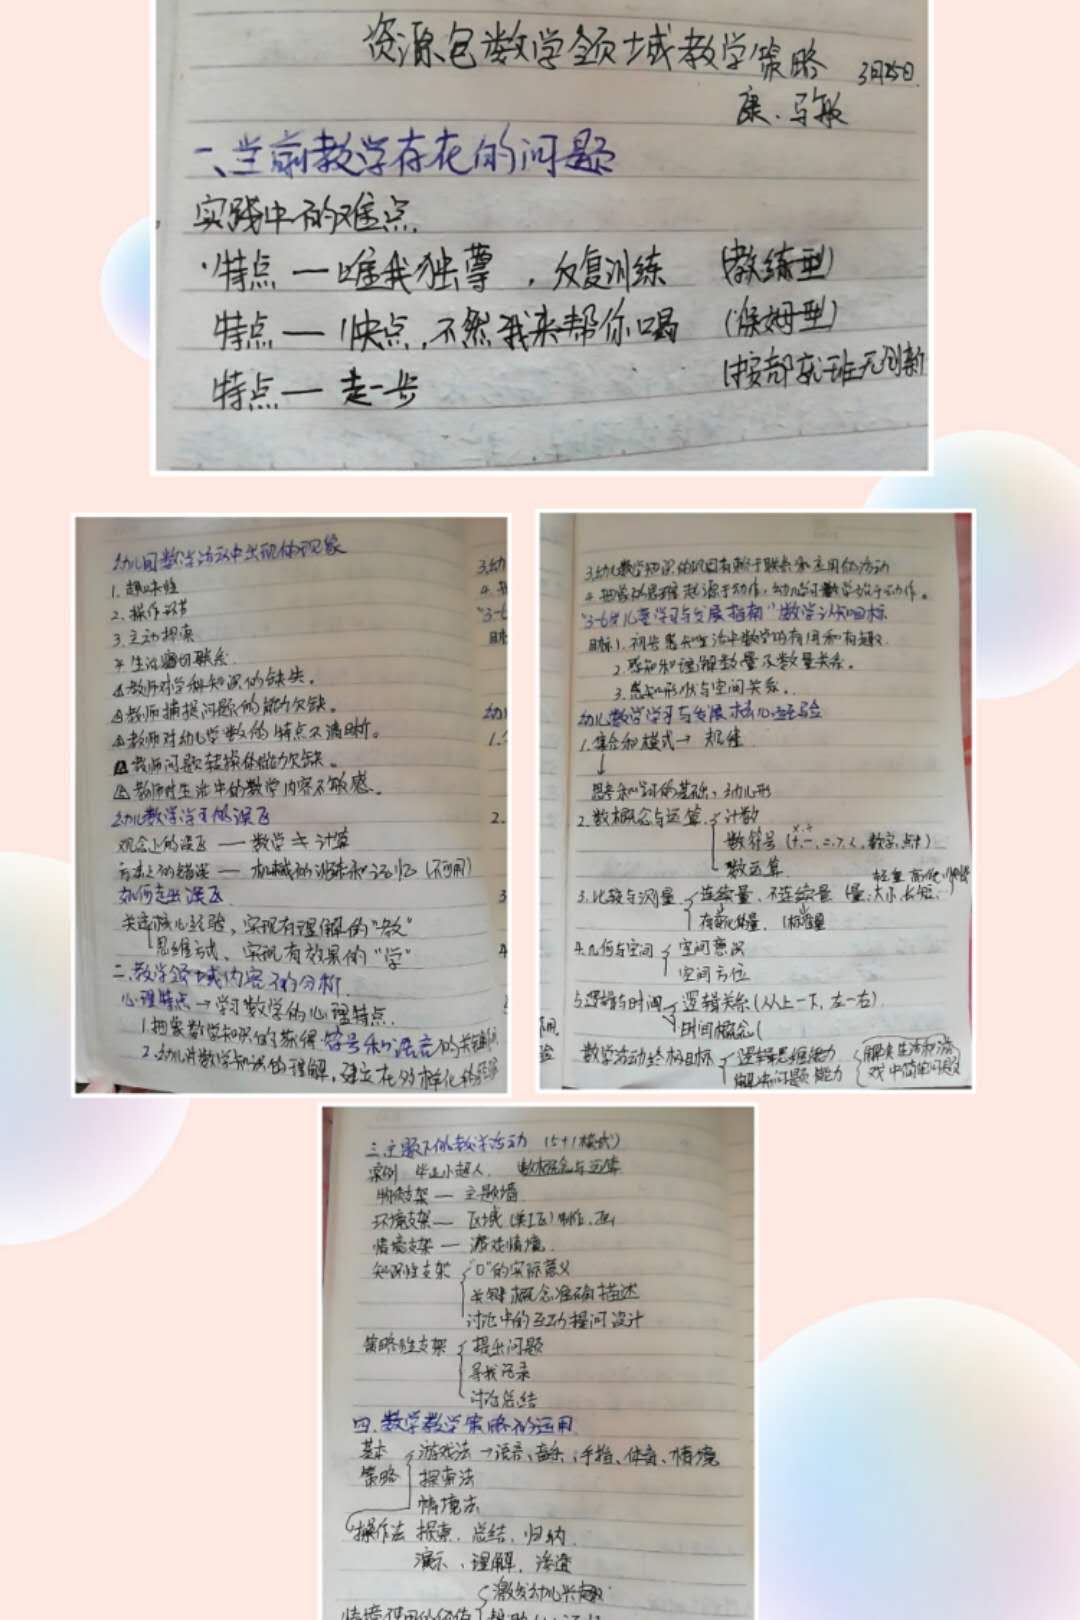 资源包数学领域教学策略 3月25日
康.马敏
一、当前教学存在的问题
实践中的难点
特点—唯我独尊,反复训练 (教练型)
特点—快点,不然我来帮你喝 (保姆型)
特点—走一步 (按部就班无创新
幼儿园数学活动中出现的现象
1.趣味性
2.操作环节
3.主动探索
4.生活密切联系
教师对学科知识的缺失。
教师捕捉问题的能力欠缺。
教师对幼儿学数的特点不清晰。
教师问题转换的能力欠缺。
教师对生活中的数学内容不敏感。
幼儿数学学习的误区
观念上的误区—数学≠计算
方法上的错误—机械的训练和记忆(不可用)
如何走出误区
关键核心经验,实现有理解的“教”
思维方式、实现有效果的“学”
二.数学领域内容的分析
心理特点→学习数学的心理特点.
1.抽象数学知识的获得,符号和语言的关键
2.幼儿对数学知识的理解,建立在多样化
3.幼儿数学知识的巩固有赖于联系和应用的活动
4.抽象的思维起源于动作,幼儿学习数学始于动作。
“3-6岁儿童学习与发展指南”数学认知目标
目标1.初步感知生活中数学的有用和有趣.
2.感知和理解数量及数量关系。
3.感知形状与空间关系。
幼儿数学学习与发展核心经验
1.集合和模式→规律
思考和学习的基础,幼儿形
2.数概念与运算 计数
数符号(+,-,=,>,<,数字,点卡)
数运算
3.比较与测量 连续量、不连续量(量:大小,长短, 轻重高低
存量
4.几何与空间 空间意识
空间方位
5.逻辑与时间 逻辑关系(从上—下,左—右)
时间概念(
数学活动终极目标 逻辑思维能力
解决问题能力 解决生活和游
戏中简单问题
三.主题下的数学活动 (5+1模式)
案例 毕业小超人. 数概念与运算
物质支架—主题墙
环境支架—区域(美工区)制作,画
情境支架—游戏情境.
知识性支架 “0”的实际意义
关键概念准确描述
讨论中的互动提问设计
策略性支架 提出问题
寻找记录
讨论总结
四.数学教学策略的运用
基本 游戏法→语言、音乐、手指、体育、情境
策略 探索法
情境法
操作法 探索、总结、归纳
演示、理解、渗透
激发幼儿兴趣